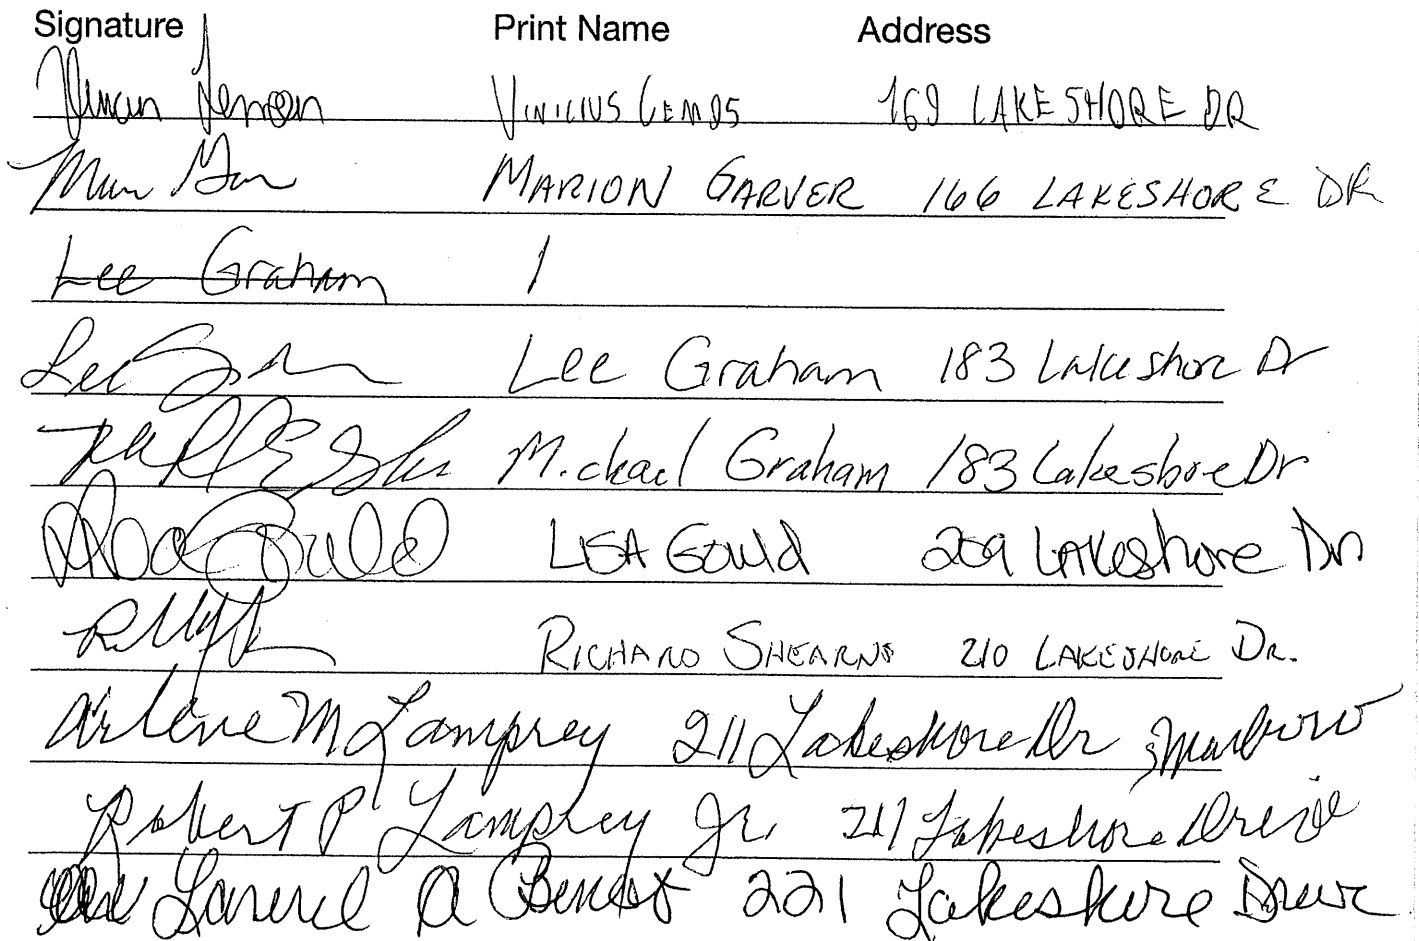 Signature Print Name Address
VINICIUS LEMOS 169 LAKESHORE DR
MARION GARVER 166 LAKESHORE DR
Lee Graham
Lee Graham 183 Lakeshore Dr
Michael Graham 183 Lakeshore Dr
Lisa Gould LISA GOULD 209 LAKeshore Dr
RICHARD SHEARNS 210 LAKESHORE DR.
Arlene M Lamprey 211 Lakeshore Dr
Robert P Lamprey Jr. 211 Lakeshore Drive
A 221 Lakeshore Drive